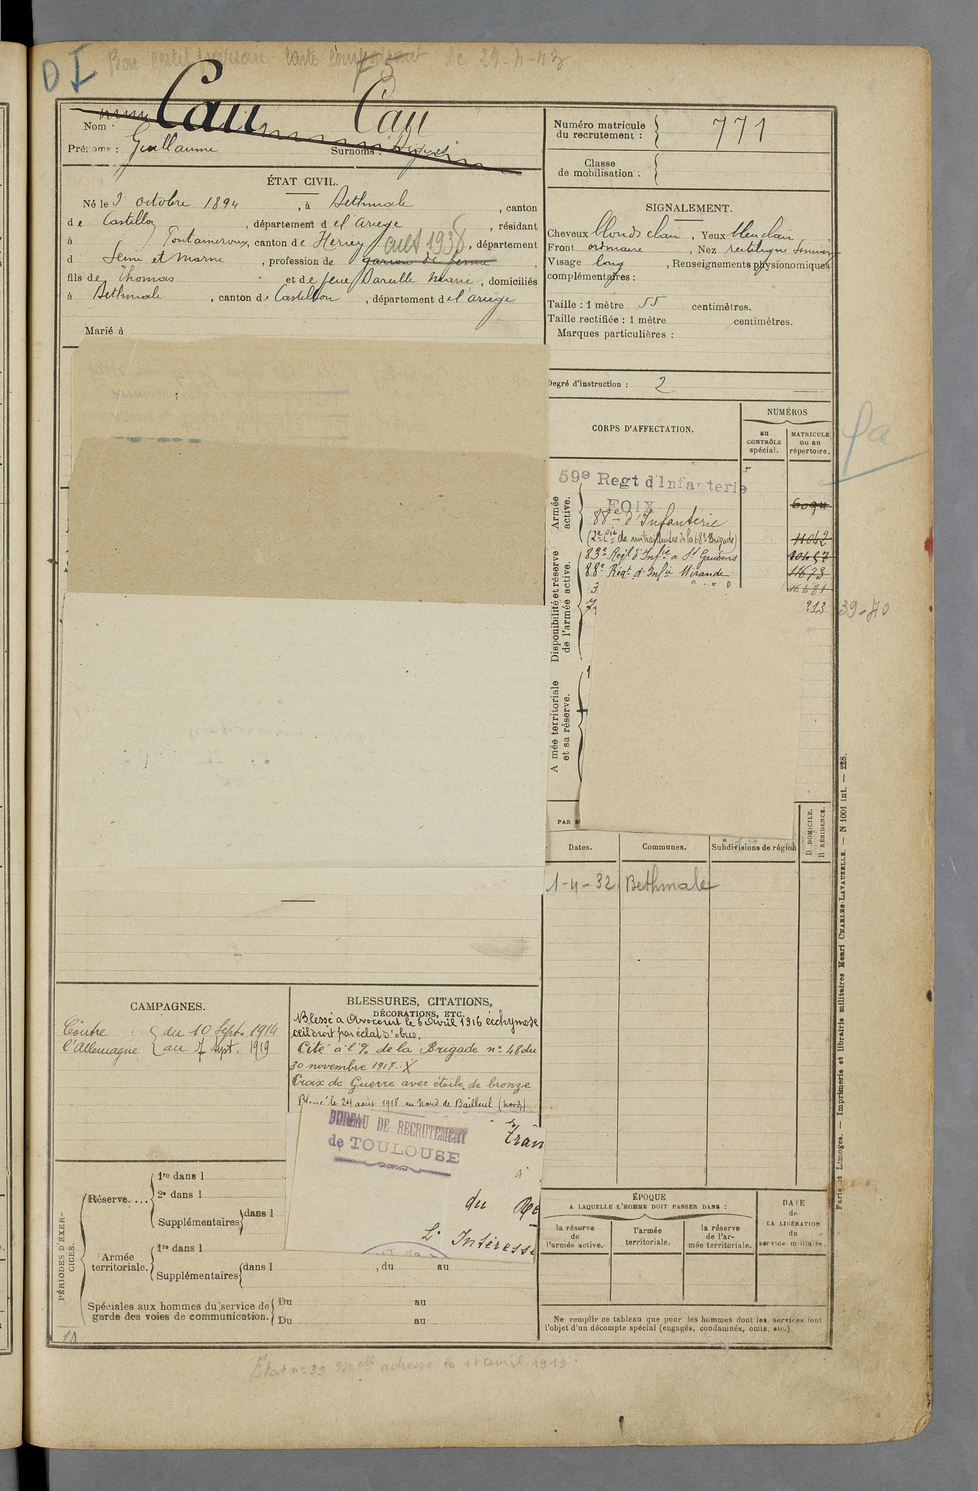 D I Bon certif provisoire carte combattant le 29-4-43
Cau Cau
Nom :
Prénoms : Guillaume Surnoms :
Numéro matricule du recrutement : 771
Classe de mobilisation :
ÉTAT CIVIL.
Né le 3 octobre 1894, à Bethmale, canton
de Castillon, département d el'Ariege, résidant
à Fontameroux, canton de Hervey, département
cult 1938
d Seine et Marne, profession de garcon de ferme
fils de Thomas et de feue Marie, domiciliés
à Bethmale, canton de Castillon, département de l'ariège
Marié à
SIGNALEMENT.
Cheveux blonds clair, Yeux bleu clair
Front ordinaire, Nez rectiligne
Visage long, Renseignements physionomiques
complémentaires :
Taille : 1 mètre 55 centimètres.
Taille rectifiée : 1 mètre centimètres.
Marques particulières :
Degré d'instruction : 2
CORPS D'AFFECTATION.
NUMÉROS
au CONTRÔLE spécial.
MATRICULE ou au répertoire.
Armée active.
59e Regt d'Infanterie
FOIX
88e d'Infanterie
(2e Cie de mitrailleuses de la 68e Brigade) 11042
Disponibilité et réserve de l'armée active.
83e Regt d'Infie a St Gaudens
88e Regt d'Infie Mirande 11673
313 39-40
Armée territoriale et sa réserve.
PAR
Dates. Communes. Subdivisions de région
D DOMICILE. R RÉSIDENCE.
1-4-32 Bethmale
CAMPAGNES.
Contre l'Allemagne
du 10 Sept. 1914
au 7 Sept. 1919
BLESSURES, CITATIONS,
DÉCORATIONS, ETC.
Blessé a Avocourt le 6 Avril 1916 ecchymose
oeil droit par éclat d'obus.
Cité à l'% de la Brigade n° 48 du
30 novembre 1917. X
Croix de Guerre avec étoile de bronze
Blessé le 24 août 1918 au Nord de Bailleul (Nord)
BUREAU DE RECRUTEMENT
de TOULOUSE
à
du
L' Intéressé
PÉRIODES D'EXERCICES.
Réserve....
1re dans l
2e dans l
Supplémentaires dans l
Armée territoriale.
1re dans l
Supplémentaires dans l , du au
Spéciales aux hommes du service de garde des voies de communication.
Du au
Du au
ÉPOQUE
A LAQUELLE L'HOMME DOIT PASSER DANS :
la réserve de l'armée active.
l'armée territoriale.
la réserve de l'armée territoriale.
DATE de LA LIBÉRATION du service militaire.
Ne remplir ce tableau que pour les hommes dont les services font
l'objet d'un décompte spécial (engagés, condamnés, omis, etc.).
Paris et Limoges. — Imprimerie et librairie militaires Henri CHARLES-LAVAUZELLE. — N 1001 int. — 228.
Etat n° 39 adressé le 11 avril 1919.